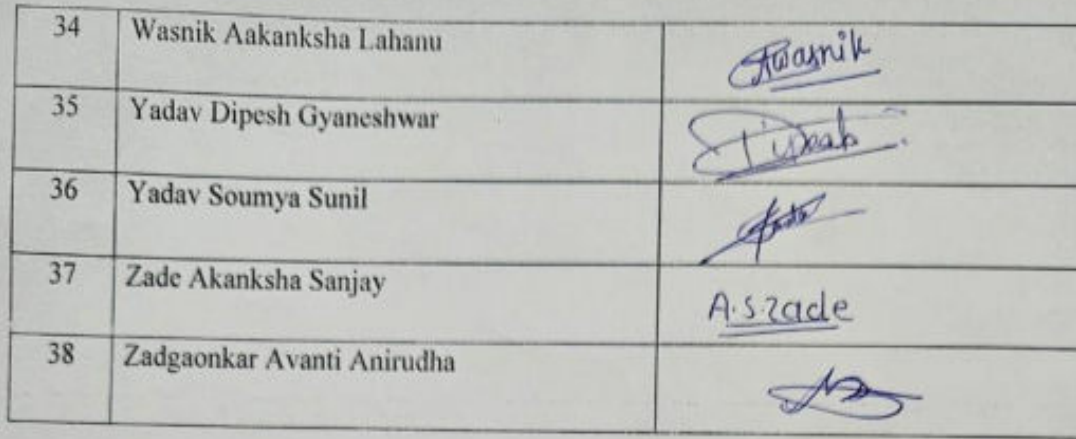 34 Wasnik Aakanksha Lahanu Awasnik
35 Yadav Dipesh Gyaneshwar
36 Yadav Soumya Sunil
37 Zade Akanksha Sanjay A.S.Zade
38 Zadgaonkar Avanti Anirudha